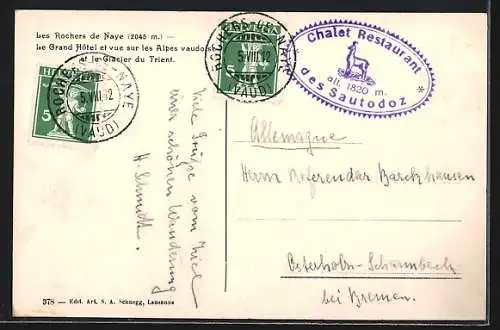 Les Rochers de Naye (2045 m.) —
Le Grand Hôtel et vue sur les Alpes vaudoises
et le Glacier du Trient.
ROCHERS-DE-NAYE
5.VIII.12
(VAUD)
5
ROCHERS-DE-NAYE
5.VIII.12
(VAUD)
5
Chalet Restaurant
alt. 1820 m.
des Sautodoz
Viele Grüße vom Ziel
einer schönen Wanderung
H. Schmidt.
Allemagne
Herrn Referendar Barckhausen
Osterholz-Scharmbeck
bei Bremen.
378 — Edit. Art. S. A. Schnegg, Lausanne